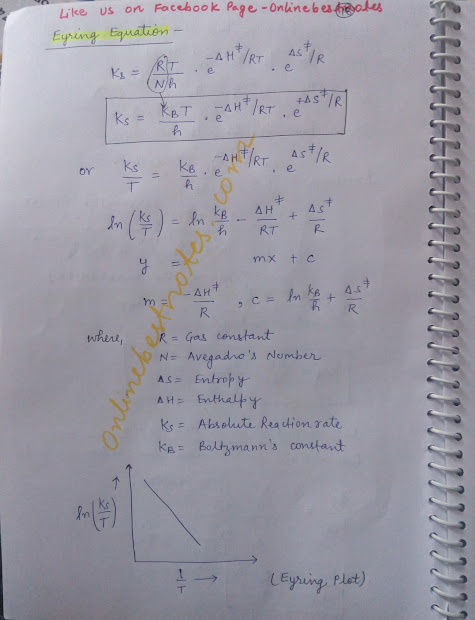 Like us on Facebook Page - Onlinebestnotes
Eyring Equation -
Ks = RT/Nh · e^(-ΔH‡/RT) · e^(ΔS‡/R)
Ks = kBT/h · e^(-ΔH‡/RT) · e^(+ΔS‡/R)
or Ks/T = kB/h · e^(-ΔH‡/RT) · e^(ΔS‡/R)
ln(Ks/T) = ln kB/h - ΔH‡/RT + ΔS‡/R
y = mx + c
m = -ΔH‡/R , c = ln kB/h + ΔS‡/R
where, R = Gas constant
N = Avegadro's Number
ΔS = Entropy
ΔH = Enthalpy
Ks = Absolute Reaction rate
KB = Boltzmann's constant
ln(Ks/T) ↑
1/T → (Eyring Plot)
Onlinebestnotes.com